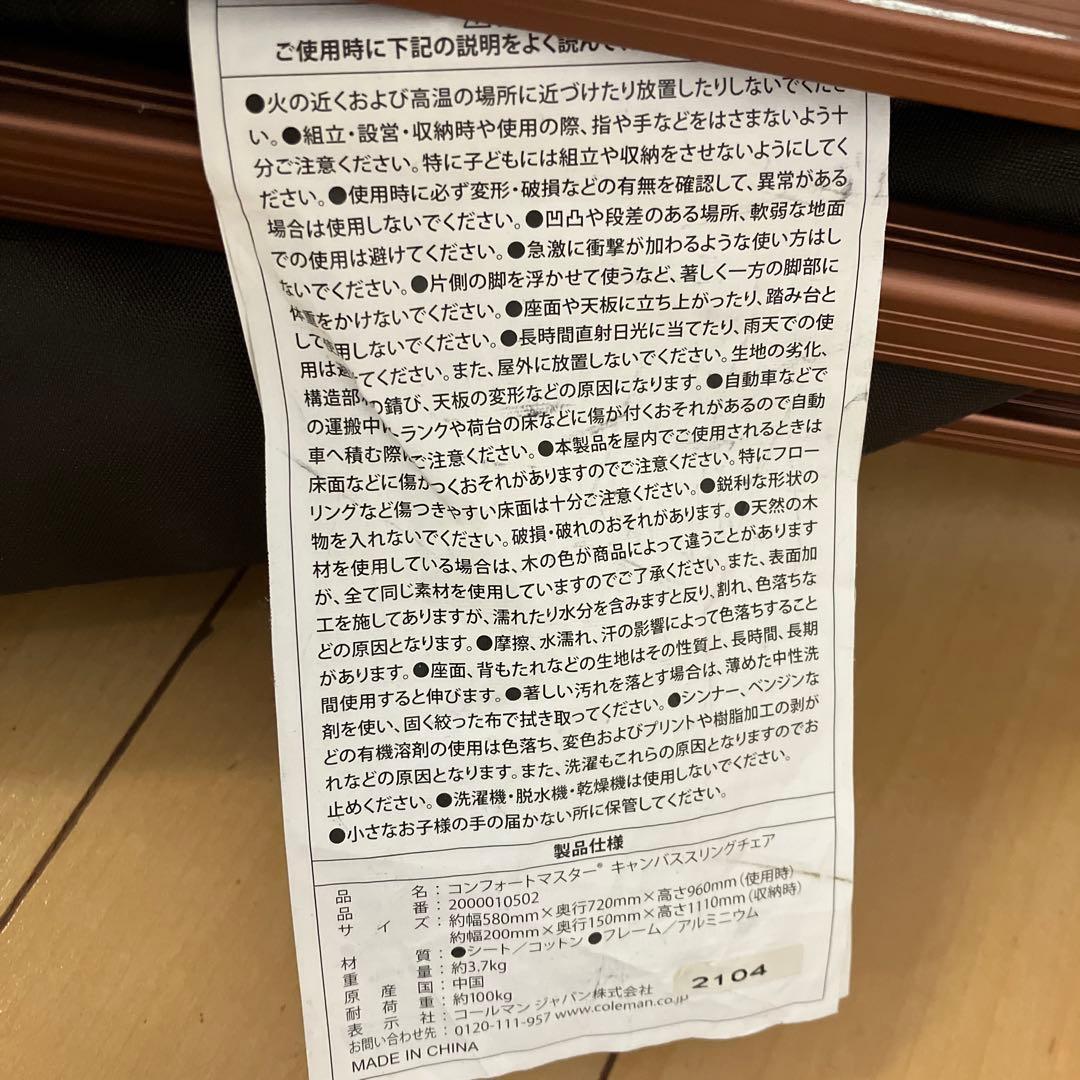 ご使用時に下記の説明をよく読んで、
●火の近くおよび高温の場所に近づけたり放置したりしないでくださ
い。●組立・設営・収納時や使用の際、指や手などをはさまないよう十
分ご注意ください。特に子どもには組立や収納をさせないようにしてく
ださい。●使用時に必ず変形・破損などの有無を確認して、異常がある
場合は使用しないでください。●凹凸や段差のある場所、軟弱な地面
での使用は避けてください。●急激に衝撃が加わるような使い方はし
ないでください。●片側の脚を浮かせて使うなど、著しく一方の脚部に
体重をかけないでください。●座面や天板に立ち上がったり、踏み台と
して使用しないでください。●長時間直射日光に当てたり、雨天での使
用は避てください。また、屋外に放置しないでください。生地の劣化、
構造部の錆び、天板の変形などの原因になります。●自動車などで
の運搬中、ランクや荷台の床などに傷が付くおそれがあるので自動
車へ積む際ご注意ください。●本製品を屋内でご使用されるときは
床面などに傷がつくおそれがありますのでご注意ください。特にフロー
リングなど傷つきやすい床面は十分ご注意ください。●鋭利な形状の
物を入れないでください。破損・破れのおそれがあります。●天然の木
材を使用している場合は、木の色が商品によって違うことがあります
が、全て同じ素材を使用していますのでご了承ください。また、表面加
工を施してありますが、濡れたり水分を含みますと反り、割れ、色落ちな
どの原因となります。●摩擦、水濡れ、汗の影響によって色落ちすること
があります。●座面、背もたれなどの生地はその性質上、長時間、長期
間使用すると伸びます。●著しい汚れを落とす場合は、薄めた中性洗
剤を使い、固く絞った布で拭き取ってください。●シンナー、ベンジンな
どの有機溶剤の使用は色落ち、変色およびプリントや樹脂加工の剥が
れなどの原因となります。また、洗濯もこれらの原因となりますのでお
止めください。●洗濯機・脱水機・乾燥機は使用しないでください。
●小さなお子様の手の届かない所に保管してください。
製品仕様
品名：コンフォートマスター® キャンバススリングチェア
品番：2000010502
サイズ：約幅580mm×奥行720mm×高さ960mm（使用時）
約幅200mm×奥行150mm×高さ1110mm（収納時）
材質：●シート／コットン ●フレーム／アルミニウム
重量：約3.7kg
原産国：中国
耐荷重：約100kg
表示社：コールマン ジャパン株式会社
お問い合わせ先：0120-111-957 www.coleman.co.jp
MADE IN CHINA
2104